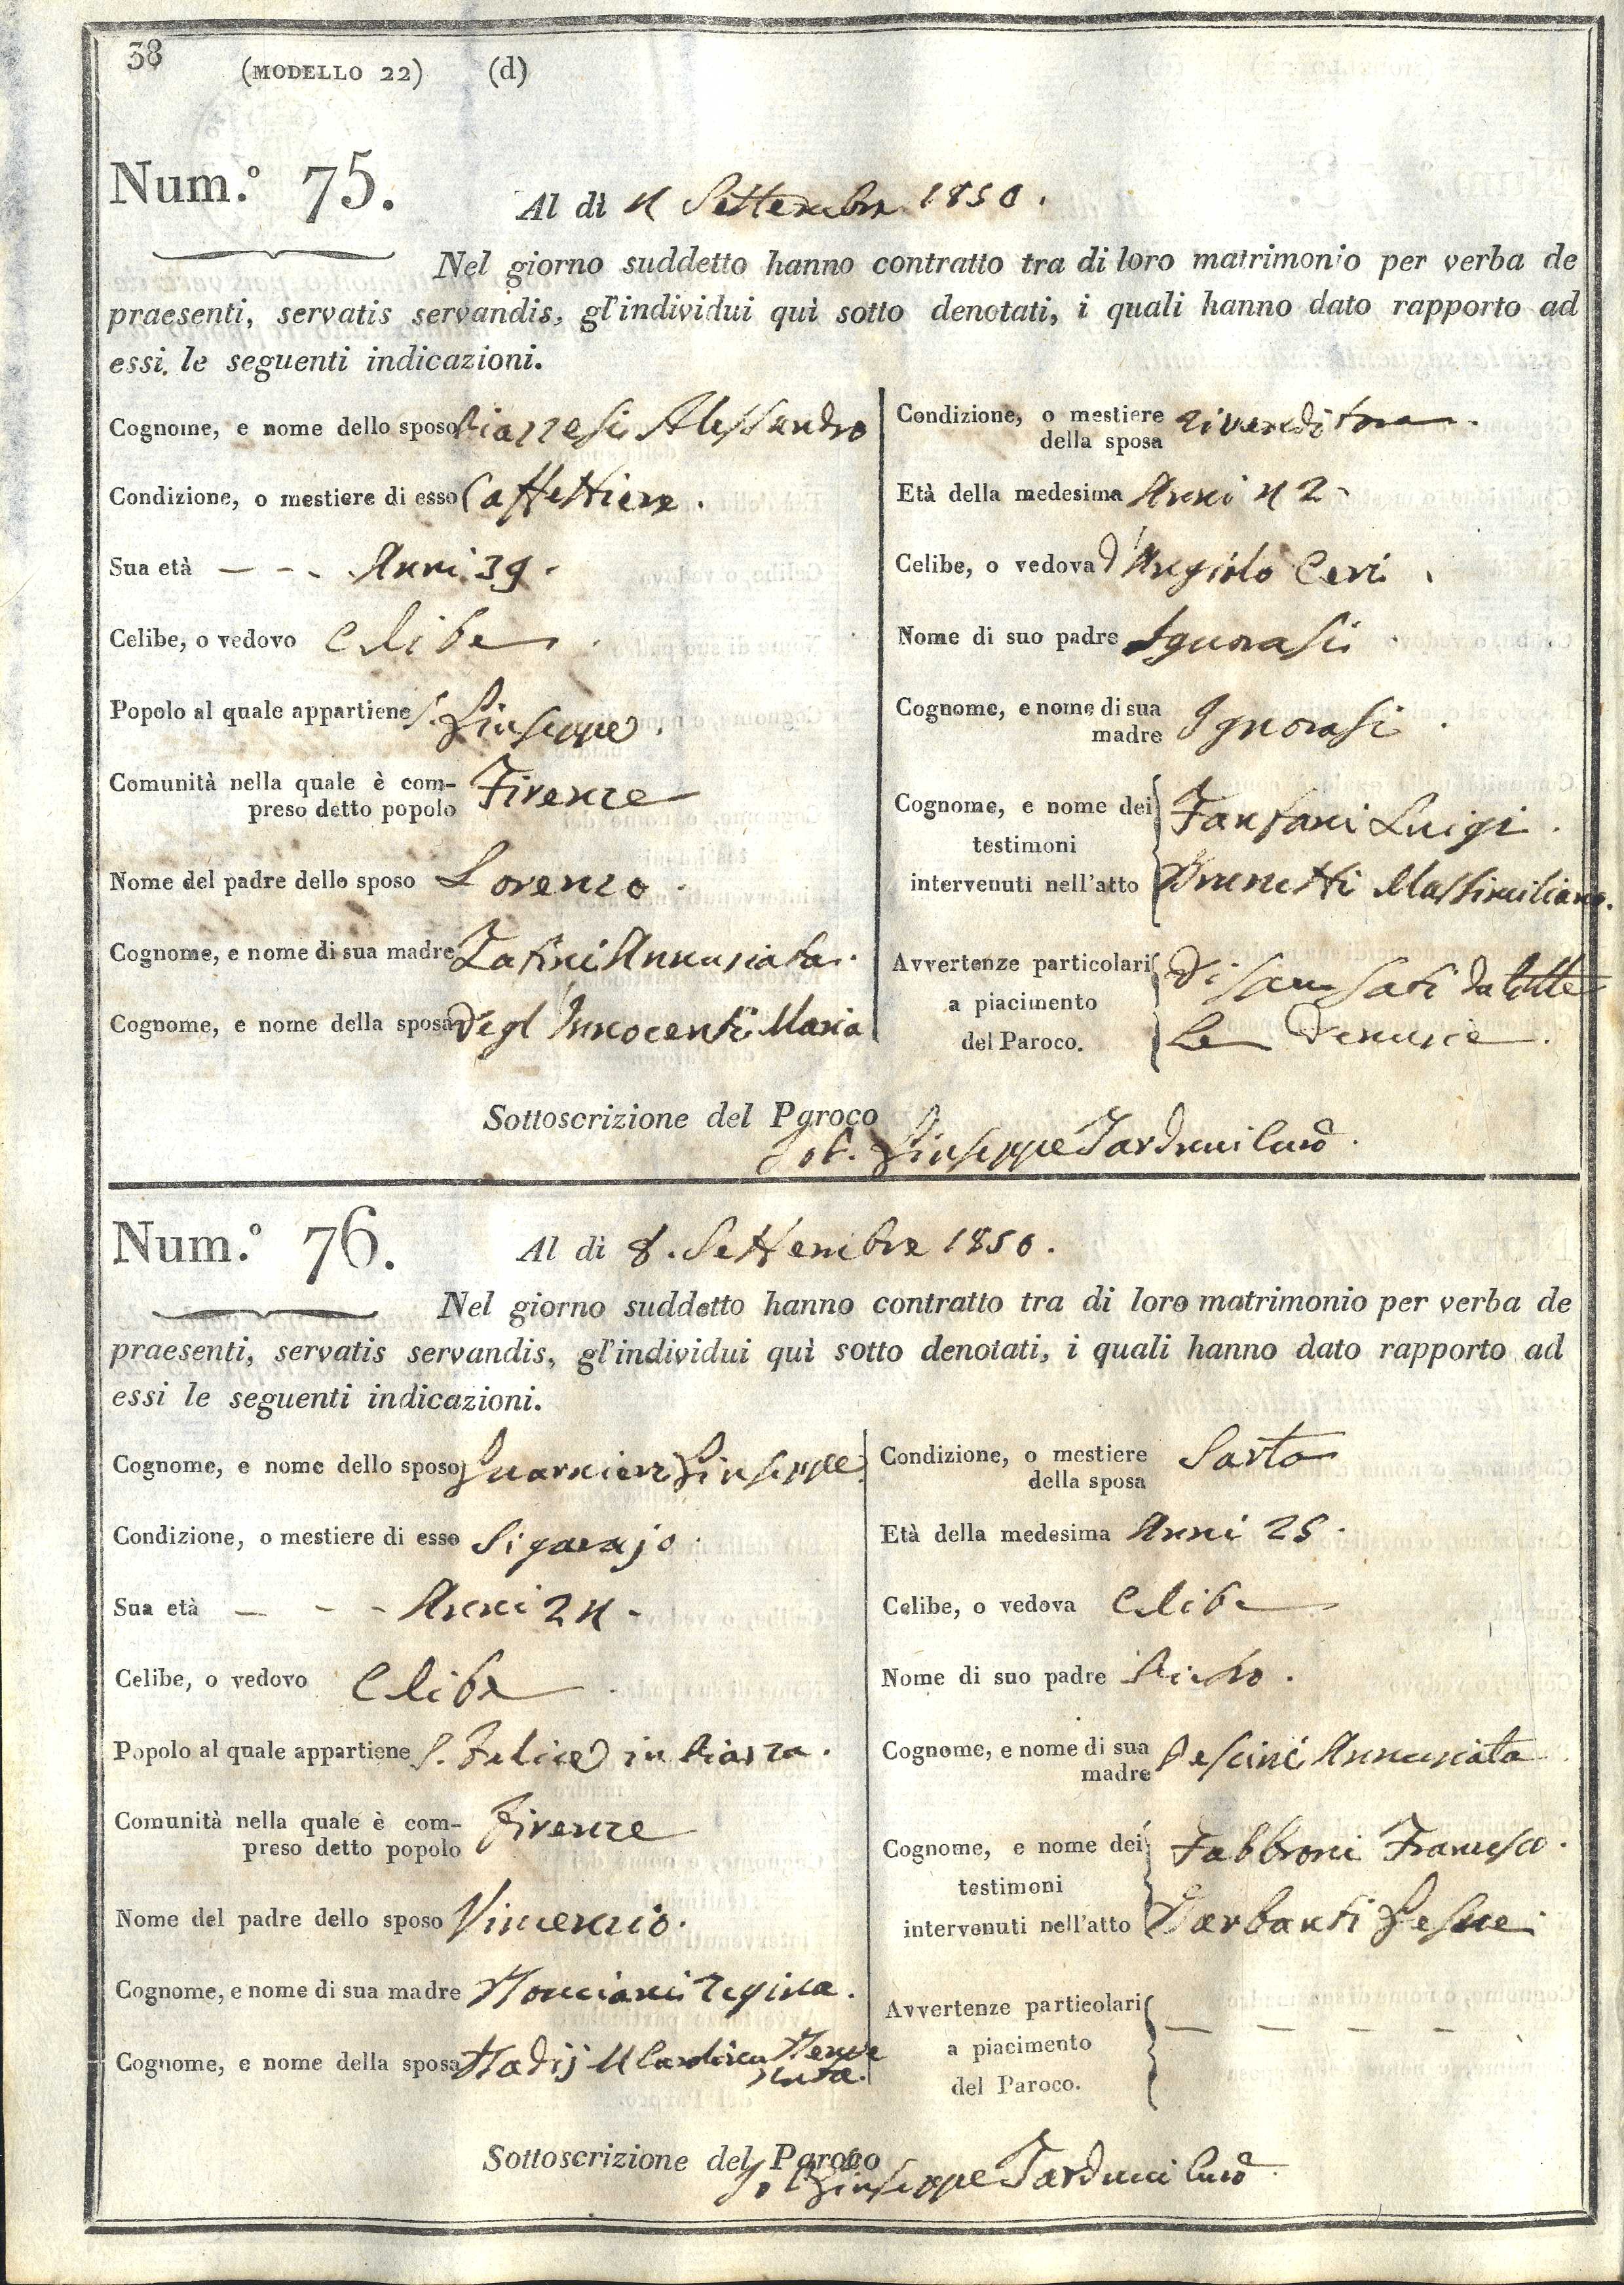 38 (MODELLO 22) (d)
Num.º 75.
Al dì 4 Settembre 1850.
Nel giorno suddetto hanno contratto tra di loro matrimonio per verba de
praesenti, servatis servandis, gl'individui quì sotto denotati, i quali hanno dato rapporto ad
essi le seguenti indicazioni.
Cognome, e nome dello sposo Alessandro
Condizione, o mestiere di esso Caffettiere.
Sua età - - - Anni 39.
Celibe, o vedovo Celibe
Popolo al quale appartiene S. Giuseppe.
Comunità nella quale è com-
preso detto popolo Firenze
Nome del padre dello sposo Lorenzo.
Cognome, e nome di sua madre Annunziata.
Cognome, e nome della sposa Degl'Innocenti Maria
Condizione, o mestiere
della sposa rivenditora.
Età della medesima Anni 42
Celibe, o vedova d'Angiolo Ceri
Nome di suo padre Ignorasi
Cognome, e nome di sua
madre Ignorasi.
Cognome, e nome dei Fanfani Luigi.
testimoni
intervenuti nell'atto Brunetti Massimiliano.
Avvertenze particolari Dispensati da tutte
a piacimento
del Paroco. le Denunzie.
Sottoscrizione del Paroco
Giuseppe Tarduci Curo.
Num.º 76.
Al dì 8. Settembre 1850.
Nel giorno suddetto hanno contratto tra di loro matrimonio per verba de
praesenti, servatis servandis, gl'individui quì sotto denotati, i quali hanno dato rapporto ad
essi le seguenti indicazioni.
Cognome, e nome dello sposo Guarnieri Giuseppe.
Condizione, o mestiere di esso Sigarajo.
Sua età - - - Anni 24.
Celibe, o vedovo Celibe
Popolo al quale appartiene S. Felice in Piazza.
Comunità nella quale è com-
preso detto popolo Firenze
Nome del padre dello sposo Vincenzio.
Cognome, e nome di sua madre Regina.
Cognome, e nome della sposa
Condizione, o mestiere
della sposa Sarta
Età della medesima Anni 25.
Celibe, o vedova Celibe
Nome di suo padre Pietro.
Cognome, e nome di sua
madre Pescini Annunziata
Cognome, e nome dei Fabbroni Francesco.
testimoni
intervenuti nell'atto Barbanti
Avvertenze particolari - - - - -
a piacimento
del Paroco.
Sottoscrizione del Paroco
Giuseppe Tarduci Curo